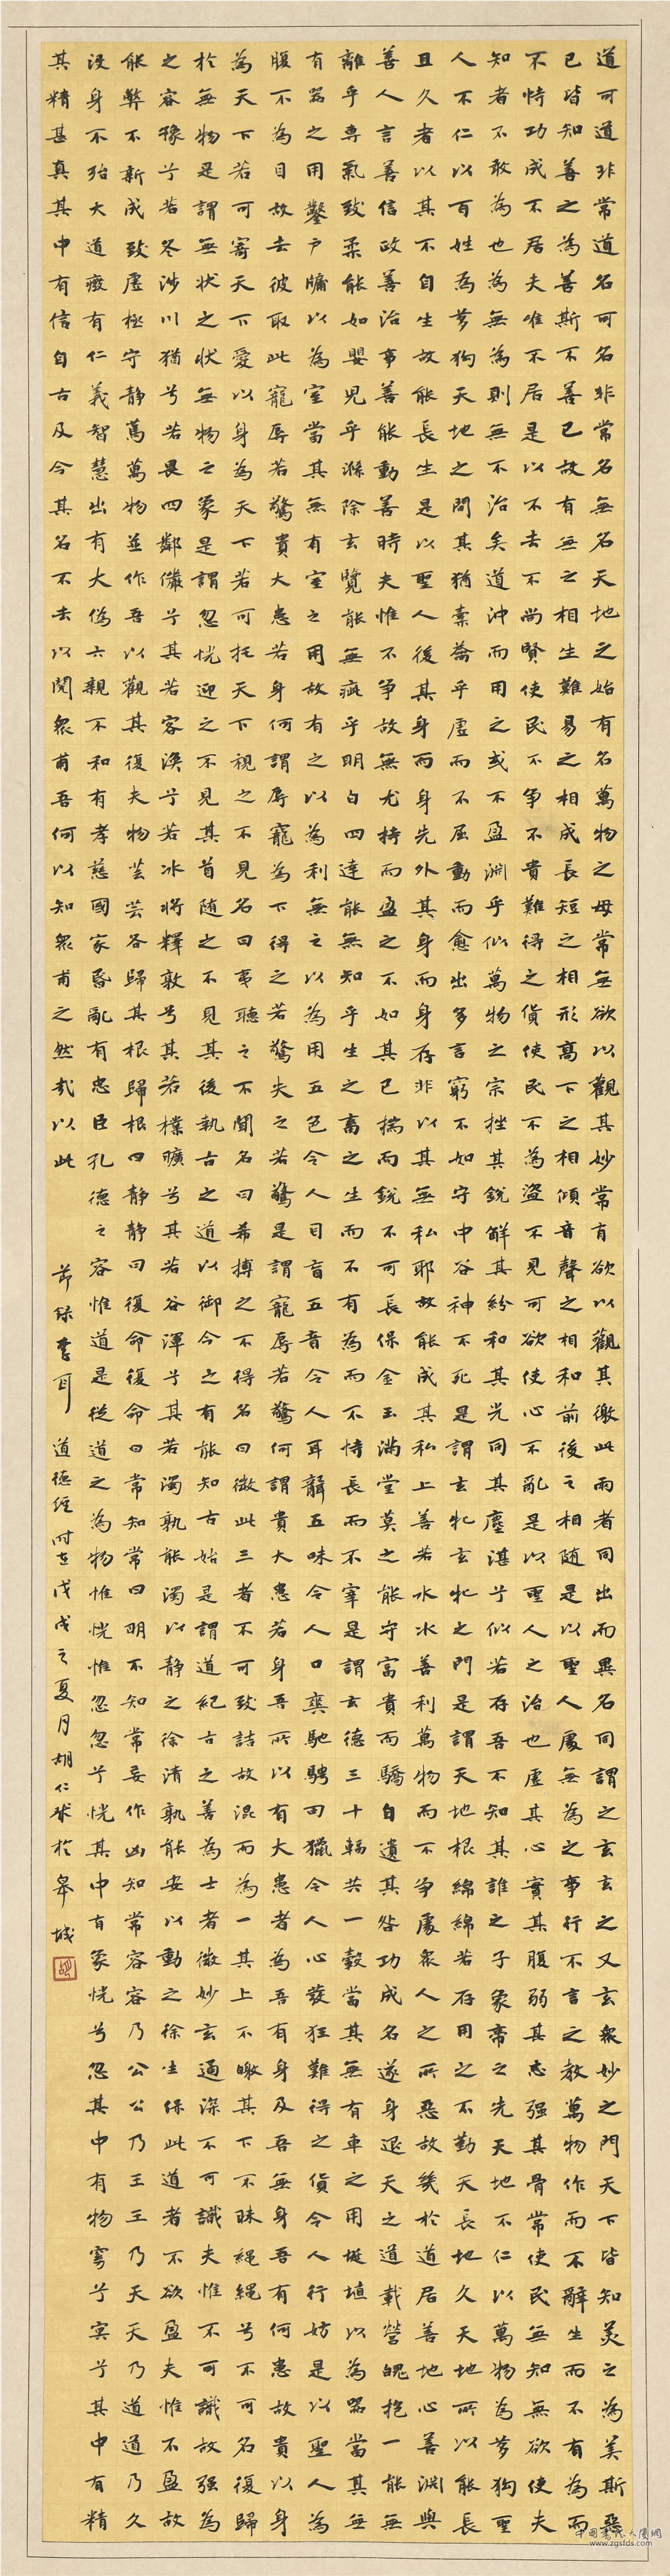 道可道非常道名可名非常名無名天地之始有名萬物之母常無欲以觀其妙常有欲以觀其徼此兩者同出而異名同謂之玄玄之又玄眾妙之門天下皆知美之為美斯惡
已皆知善之為善斯不善已故有無之相生難易之相成長短之相形高下之相傾音聲之相和前後之相随是以聖人處無為之事行不言之教萬物作而不辭生而不有為而
不恃功成不居夫唯不居是以不去不尚賢使民不爭不貴難得之貨使民不為盜不見可欲使心不亂是以聖人之治也虛其心實其腹弱其志强其骨常使民無知無欲使夫
知者不敢為也為無為則無不治矣道沖而用之或不盈淵乎似萬物之宗挫其銳解其紛和其光同其塵湛兮似若存吾不知其誰之子象帝之先天地不仁以萬物為芻狗聖
人不仁以百姓為芻狗天地之間其猶橐籥乎虛而不屈動而愈出多言窮不如守中谷神不死是謂玄牝玄牝之門是謂天地根綿綿若存用之不勤天長地久天地所以能長
且久者以其不自生故能長生是以聖人後其身而身先外其身而身存非以其無私耶故能成其私上善若水水善利萬物而不争處眾人之所惡故幾於道居善地心善淵與
善人言善信政善治事善能動善時夫惟不争故無尤持而盈之不如其已揣而銳不可長保金玉滿堂莫之能守富貴而驕自遺其咎功成名遂身退天之道載營魄抱一能無
離乎專氣致柔能如嬰兒乎滌除玄覽能無疵乎明白四達能無知乎生之畜之生而不有為而不恃長而不宰是謂玄德三十輻共一轂當其無有車之用埏埴以為器當其無
有器之用鑿户牖以為室當其無有室之用故有之以為利無之以為用五色令人目盲五音令人耳聾五味令人口爽馳騁田獵令人心發狂難得之貨令人行妨是以聖人為
腹不為目故去彼取此寵辱若驚貴大患若身何謂辱寵為下得之若驚失之若驚是謂寵辱若驚何謂貴大患若身吾所以有大患者為吾有身及吾無身吾有何患故貴以身
為天下若可寄天下愛以身為天下若可托天下視之不見名曰夷聽之不聞名曰希搏之不得名曰微此三者不可致詰故混而為一其上不皦其下不昧繩繩兮不可名復歸
於無物是謂無狀之狀無物之象是謂忽恍迎之不見其首随之不見其後執古之道以御今之有能知古始是謂道紀古之善為士者微妙玄通深不可識夫惟不可識故强為
之容豫兮若冬涉川猶兮若畏四鄰儼兮其若客渙兮若冰將釋敦兮其若樸曠兮其若谷渾兮其若濁孰能濁以静之徐清孰能安以動之徐生保此道者不欲盈夫惟不盈故
能弊不新成致虛極守静篤萬物並作吾以觀其復夫物芸芸各歸其根歸根曰静静曰復命復命曰常知常曰明不知常妄作凶知常容容乃公公乃王王乃天天乃道道乃久
没身不殆大道廢有仁義智慧出有大偽六親不和有孝慈國家昏亂有忠臣孔德之容惟道是從道之為物惟恍惟忽忽兮恍其中有象恍兮忽其中有物窈兮冥兮其中有精
其精甚真其中有信自古及今其名不去以閱眾甫吾何以知眾甫之然哉以此 節録李耳道德經時在戊戌之夏月胡仁於皋城
中国书法大厦网
www.zgsfds.com